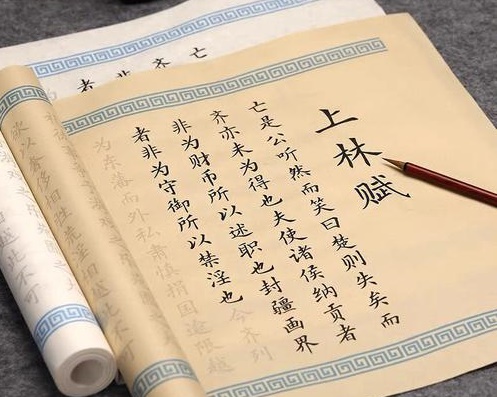 上林赋
亡是公听然而笑曰楚则失矣而
齐亦未为得也夫使诸侯纳贡者
非为财币所以述职也封疆画界
者非为守御所以禁淫也今齐列
为东藩而外私肃慎捐国逾限越
亡
齐
非
者